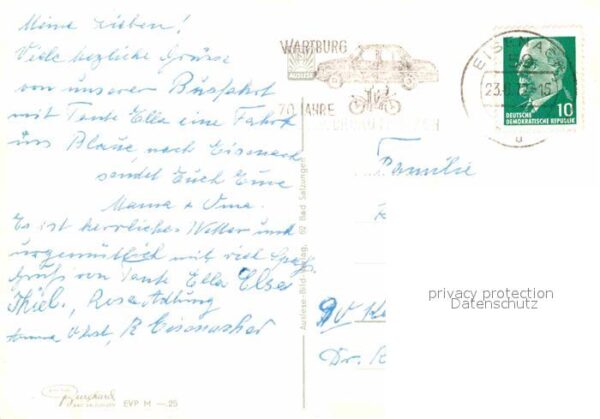 Meine Lieben!
Viele herzliche Grüsse
von unserer Busfahrt
mit Tante Ella eine Fahrt
ins Blaue, nach Eisenach
sendet Euch Eure
Mama + Oma.
Es ist herrliches Wetter und
urgemütlich mit viel Spaß
Gruß von Tante Ella Else
Thiel, Rose Adlung
WARTBURG
AUSLESE
70 JAHRE
EISENACH
DEUTSCHE
DEMOKRATISCHE REPUBLIK
10
Familie
Dr. K
privacy protection
Datenschutz
Auslese-Bild-Verlag, 62 Bad Salzungen
EVP M —.25